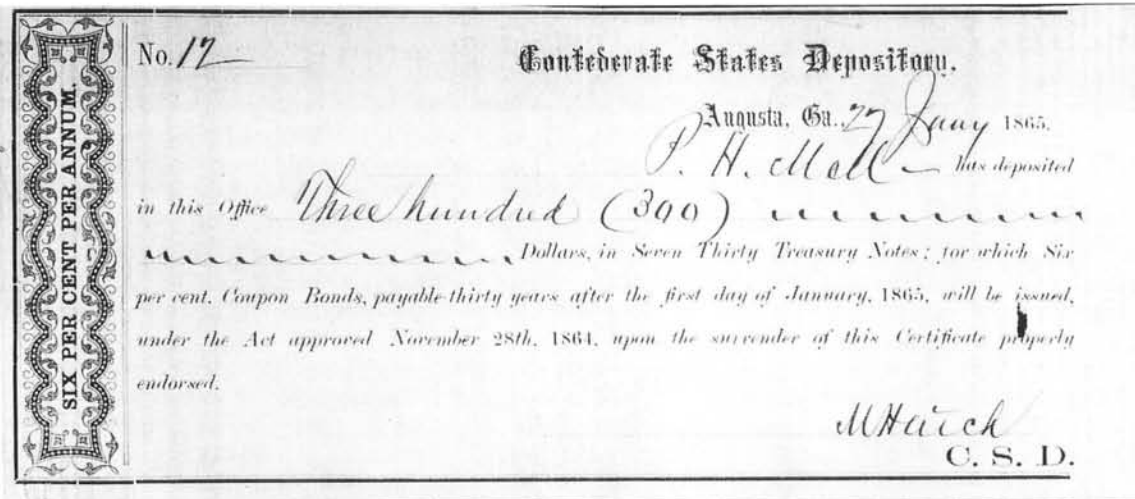 SIX PER CENT PER ANNUM.
No. 17 Confederate States Depository.
Augusta, Ga., 27 Jany 1865.
P. H. Mell has deposited
in this Office Three hundred (300)
Dollars, in Seven Thirty Treasury Notes; for which Six
per cent. Coupon Bonds, payable thirty years after the first day of January, 1865, will be issued,
under the Act approved November 28th, 1864, upon the surrender of this Certificate properly
endorsed.
M Hatch
C. S. D.